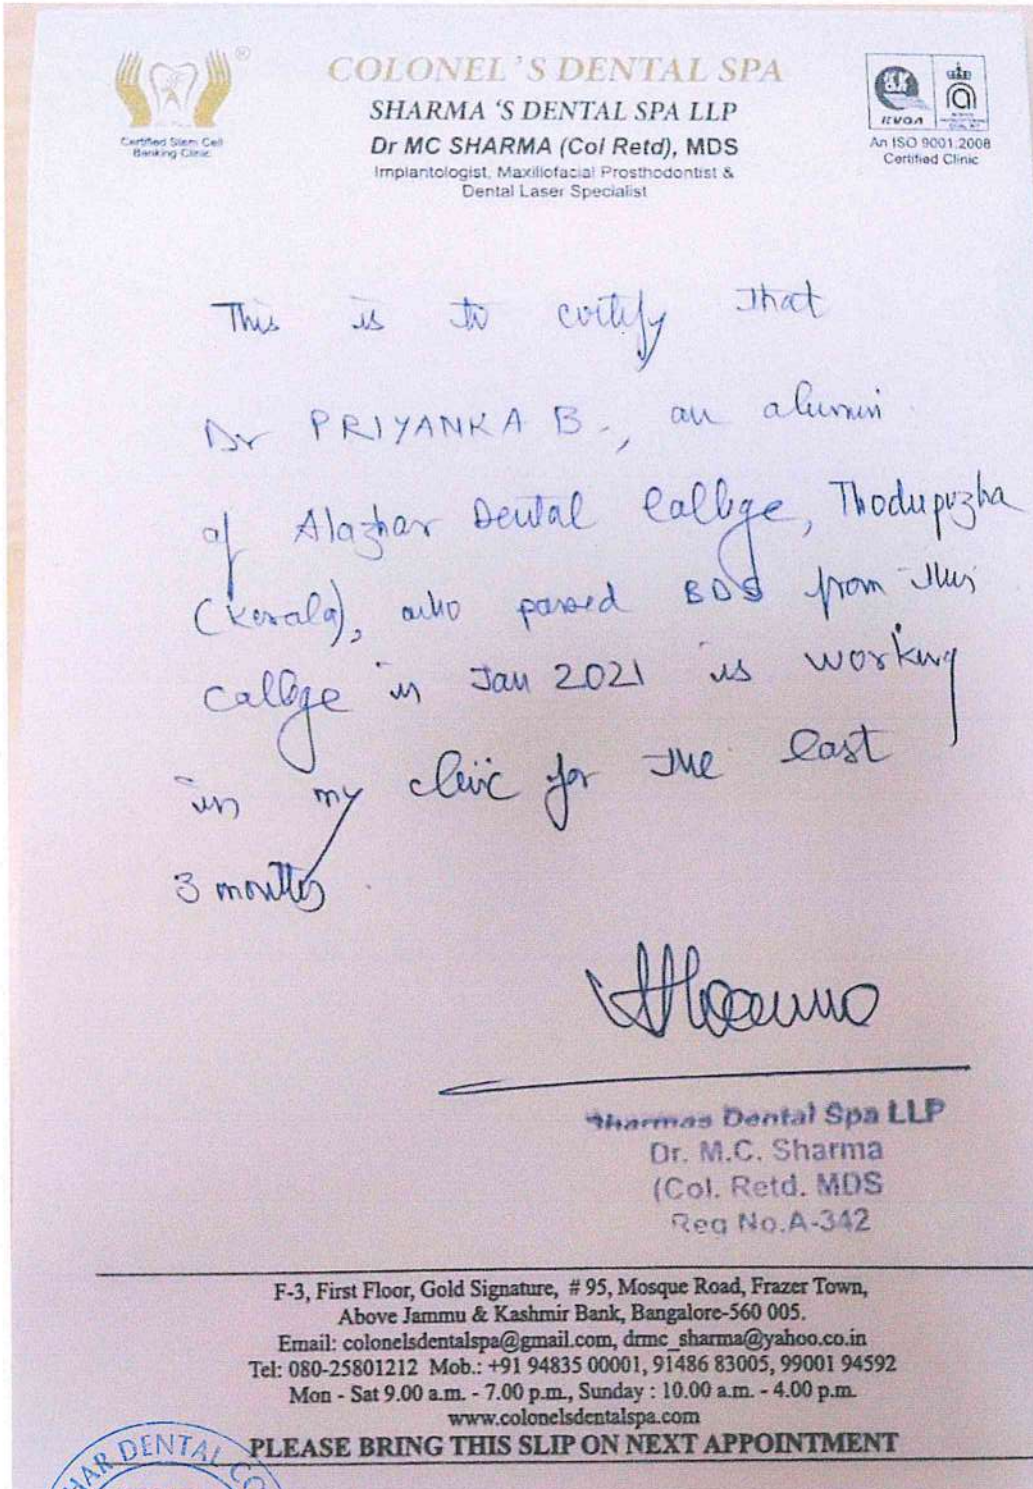 COLONEL'S DENTAL SPA
SHARMA 'S DENTAL SPA LLP
Dr MC SHARMA (Col Retd), MDS
Implantologist, Maxillofacial Prosthodontist &
Dental Laser Specialist
®
Certified Stem Cell
Banking Clinic
An ISO 9001:2008
Certified Clinic
This is to certify that
Dr PRIYANKA B., an alumni
of Alazhar Dental College, Thodupuzha
(Kerala), who passed BDS from this
college in Jan 2021 is working
in my clinic for the last
3 months.
Sharmas Dental Spa LLP
Dr. M.C. Sharma
(Col. Retd. MDS
Reg No.A-342
F-3, First Floor, Gold Signature, # 95, Mosque Road, Frazer Town,
Above Jammu & Kashmir Bank, Bangalore-560 005.
Email: colonelsdentalspa@gmail.com, drmc_sharma@yahoo.co.in
Tel: 080-25801212 Mob.: +91 94835 00001, 91486 83005, 99001 94592
Mon - Sat 9.00 a.m. - 7.00 p.m., Sunday : 10.00 a.m. - 4.00 p.m.
www.colonelsdentalspa.com
PLEASE BRING THIS SLIP ON NEXT APPOINTMENT
HAR DENTAL CO